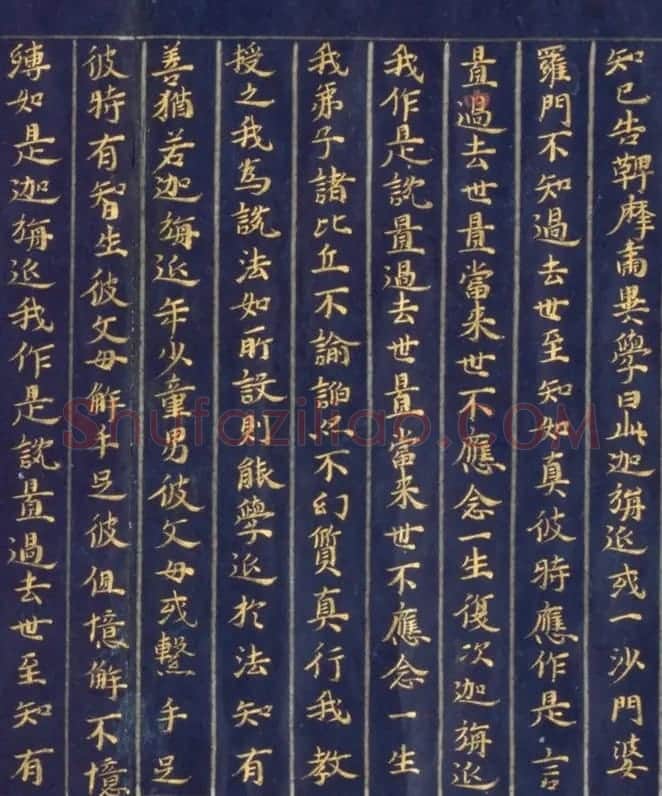 知已告鞞摩肅異學曰此迦旃延或一沙門婆
羅門不知過去世至知如真彼時應作是言
置過去世置當来世不應念一生復次迦旃延
我作是說置過去世置當来世不應念一生
我弟子諸比丘不諭諂不幻質真行我教
授之我為說法如所設則能學延於法知有
善猶若迦旃延年少童男彼父母或繫手足
彼時有智生彼父母解手足彼但憶解不憶
縛如是迦旃延我作是說置過去世至知有
Shufaziliao.COM